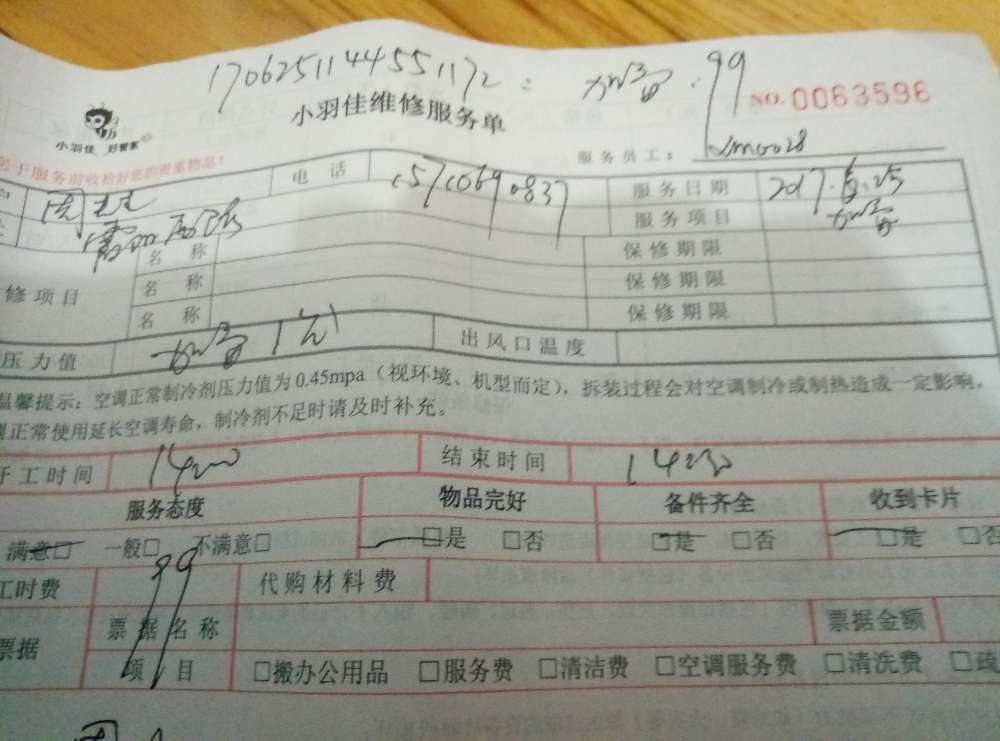 1706251144551172: 加氟 · 99
小羽佳维修服务单
NO. 0063596
小羽佳 好管家
于服务前收拾好您的贵重物品!
服务员工:
电话 15710690837 服务日期 2017.6.25
服务项目 加氟
名称 保修期限
修项目 名称 保修期限
名称 保修期限
压力值 加氟 出风口温度
温馨提示:空调正常制冷剂压力值为0.45mpa(视环境、机型而定),拆装过程会对空调制冷或制热造成一定影响,
正常使用延长空调寿命,制冷剂不足时请及时补充。
开工时间 1400 结束时间 1430
服务态度 物品完好 备件齐全 收到卡片
满意□ 一般□ 不满意□ □是 □否 □是 □否 □是 □否
工时费 99 代购材料费
票据 票据名称 票据金额
项目 □搬办公用品 □服务费 □清洁费 □空调服务费 □清洗费 □疏